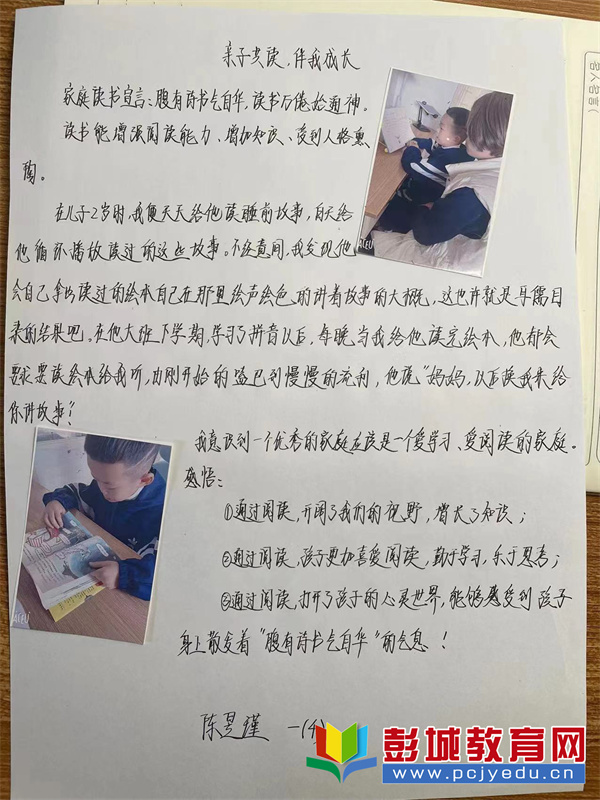 亲子共读,伴我成长
家庭读书宣言:腹有诗书气自华,读书万倦始通神。
读书能增强阅读能力、增加知识、受到人格熏
陶。
在儿子2岁时,我便天天给他读睡前故事,白天给
他循环播放读过的这些故事。不经意间,我发现他
会自己拿以读过的绘本自己在那里绘声绘色的讲着故事的大概,这也许就是耳儒目
染的结果吧。在他大班下学期,学习了拼音以后,每晚当我给他读完绘本,他都会
要求要读绘本给我听,由刚开始的磕巴到慢慢的流利,他说"妈妈,以后换我来给
你讲故事"!
我意识到一个优秀的家庭应该是一个爱学习、爱阅读的家庭。
感悟:
①通过阅读,开阔了我们的视野,增长了知识;
②通过阅读,孩子更加喜爱阅读,勤于学习,乐于思考;
③通过阅读,打开了孩子的心灵世界,能够感受到孩子
身上散发着"腹有诗书气自华"的气息!
陈昱瑾 一(4)
彭城教育网
www.pcjyedu.cn